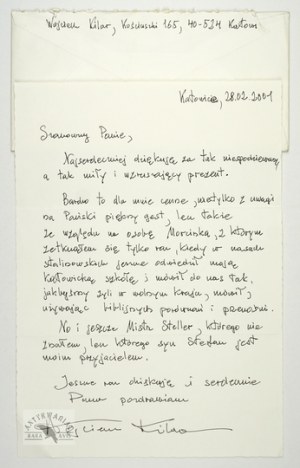 Wojciech Kilar, Kościuszki 165, 40-524 Katowice
Katowice, 28.02.2001
Szanowny Panie,
Najserdeczniej dziękuję za tak niespodziewany,
a tak miły i wzruszający prezent.
Bardzo to dla mnie cenne, nie tylko z uwagi
na Pański piękny gest, lecz także
ze względu na osobę Morcinka, z którym
zetknąłem się tylko raz, kiedy w czasach
stalinowskich odwiedził moją
katowicką szkołę, i mówił do nas tak,
jakbyśmy żyli w wolnym kraju, mówił,
używając biblijnych porównań i
No i jeszcze Mistrz Steller, którego nie
znałem, lecz którego syn Stefan jest
moim przyjacielem.
Jeszcze raz dziękuję i serdecznie
Pana pozdrawiam
Wojciech Kilar
ANTYKWARIAT
RARA AVIS